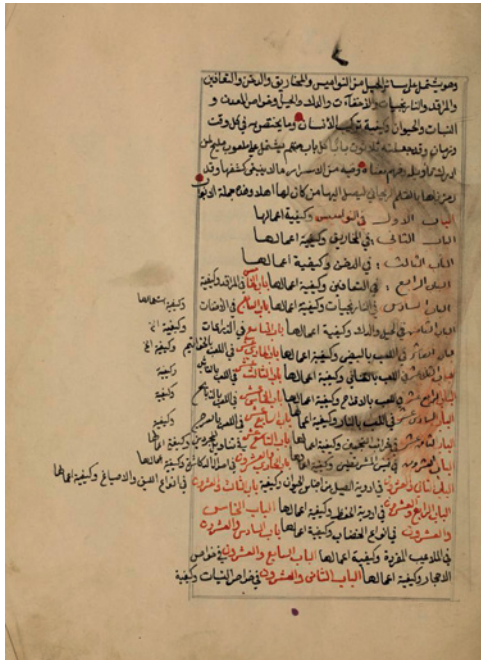 وهو يشتمل على سائر الحيل من النواميس والمخاريق والدخن والتعافين
والمراقد والنارنجيات والاخفاآت والدك والحيل وخواص المعدن و
النبات والحيوان وكيفية تركيب الانسان وما يختص به في كل وقت
وزمان وقد جعلته ثلاثون بابا كل باب منهم يشتمل على ملعوب مليح لمن
ادرك تأويله وفهم معناه وفيه من الاسرار مالا ينبغي كشفها وقد
رمزناها بالقلم الريحاني ليصل اليها من كان لها اهلا وهذه جملة الابواب
الباب الاول في النواميس وكيفية اعمالها
الباب الثاني في المخاريق وكيفية اعمالها
الباب الثالث في الدخن وكيفية اعمالها
الباب الرابع في التعافين وكيفية اعمالها باب الخامس في المراقد وكيفية
الباب السادس في النارنجيات وكيفية اعمالها باب السابع في الاخفات وكيفية اعمالها
الباب الثامن في الحيل والدك وكيفية اعمالها باب التاسع في وكيفية
باب العاشر في اللعب بالبيض وكيفية اعمالها باب الحادي عشر في اللعب وكيفية
باب الثاني عشر في اللعب بالقناني وكيفية اعمالها باب الثالث عشر في اللعب وكيفية
الباب الرابع عشر في اللعب بالاقداح وكيفية اعمالها باب الخامس عشر في اللعب وكيفية
الباب السادس عشر في اللعب بالنار وكيفية اعمالها باب السابع عشر في اللعب وكيفية
الباب الثامن عشر في وكيفية اعمالها باب التاسع عشر في وكيفية اعمالها
الباب العشرون في وكيفية اعمالها باب الحادي والعشرون في وكيفية اعمالها
الباب الثاني والعشرون في ادوية وكيفية باب الثالث والعشرون في انواع الليق والاصباغ وكيفية اعمالها
الباب الرابع والعشرون في ادوية الحفظ وكيفية اعمالها الباب الخامس
والعشرون في انواع الخضاب وكيفية اعمالها باب السادس والعشرون
في الملاعيب المفردة وكيفية اعمالها الباب السابع والعشرون في خواص
الاحجار وكيفية اعمالها الباب الثاني والعشرون في خواص النبات وكيفية